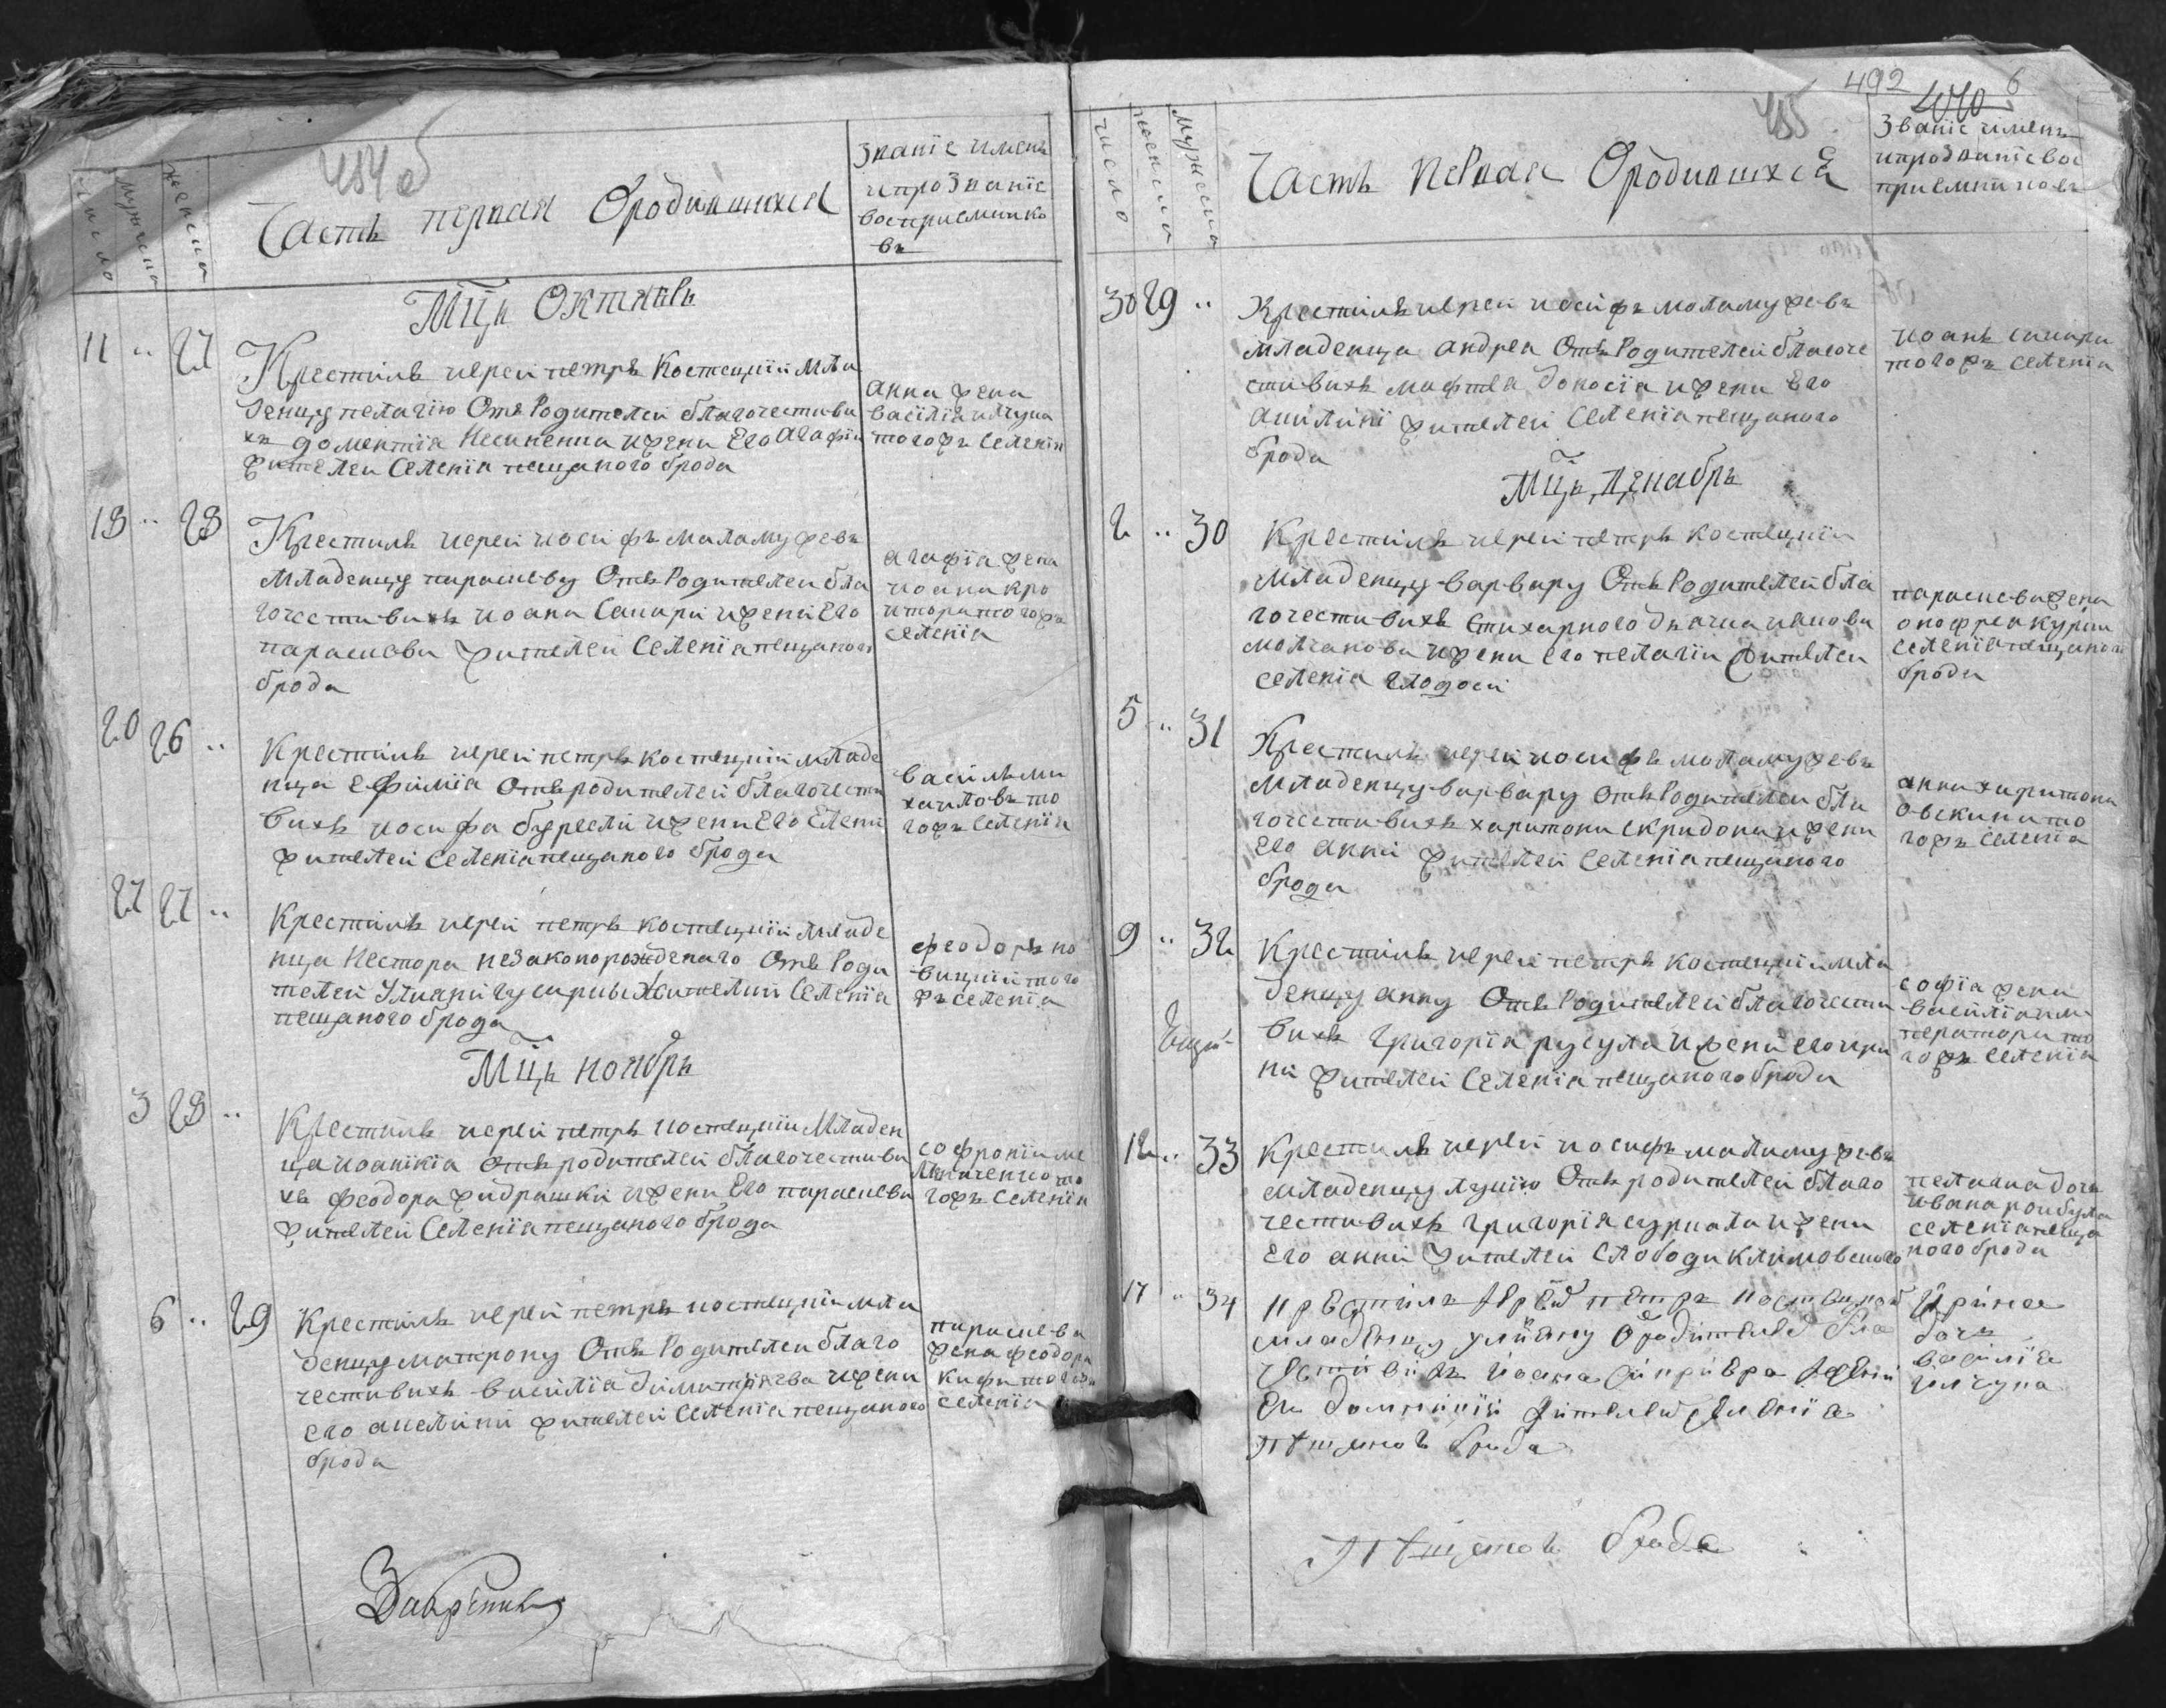 454 об
число
мужеска
женска
Часть первая Ородившихся
Званїе имень
ипрозванїе
восприемнико
въ
Мцъ Октябрь
11 .. 27
Крестилъ иерей петръ Костецкїй мла
денцу пелагїю Отъ Родителей благочестиви
хъ доментїя Несиненка ижени Его Агафїи
жителей Селенїя пещаного брода
анна жена
василїя
тогожъ Селенїя
18 .. 28
Крестилъ иерей иосифъ маламужевъ
Младенцу параскеву Отъ Родителей бла
гочестивихъ иоана Сакари ижени Его
параскеви жителей Селенїя пещаного
брода
агафїя жена
иоана кро
тогожъ
селенїя
20 26 ..
Крестилъ иерей петръ костецкїй младе
нца Ефимїа Отъ родителей благочести
вихъ иосифа буресли ижени Его Елени
жителей Селенїя пещаного брода
василь ми
хаиловъ то
гожъ Селенїя
27 27 ..
Крестилъ иерей петръ костецкїй младе
нца Нестора незаконорожденаго Отъ Роди
телей Улиани жителки Селенїя
пещаного брода
феодоръ но
вицкий того
жъ селенїя
Мцъ ноябрь
3 28 ..
Крестилъ иерей петръ костецкїй Младен
ца иоаникїа Отъ родителей благочестиви
хъ феодора фидрашки ижени Его параскеви
жителей Селенїя пещаного брода
софронїй ме
льниченко то
гожъ Селенїя
6 .. 29
Крестилъ иерей петръ костецкїй мла
денцу матрону Отъ Родителей благо
честивихъ василїа димитрїева ижени
его акелини жителей Селенїя пещаного
брода
параскева
жена феодора
тогожъ
селенїя
492
440
6
455
число
женска
мужеска
Часть Первая Ородившихся
Званїе имень
ипрозванїе вос
приемниковъ
30 29 ..
Крестилъ иерей иосифъ маламужевъ
младенца андрея Отъ Родителей благоче
стивихъ мафтея доносїя ижени Его
акилини жителей Селенїя пещаного
брода
иоанъ сакара
тогожъ селенїя
Мцъ Декабрь
2 .. 30
Крестилъ иерей петръ костецкїй
Младенцу варвару Отъ Родителей бла
гочестивихъ Стихарного дячка иякова
молчанова ижени его пелагїи жителей
селенїя глодоси
параскева жена
онофрея курки
селенїя пещаного
брода
5 .. 31
Крестилъ иерей иосифъ маламужевъ
Младенцу варвару Отъ Родителей бла
гочестивихъ харитона скридона ижени
Его анни жителей Селенїя пещаного
брода
анна харитона
то
гожъ селенїя
9 .. 32
Крестилъ иерей петръ костецкїй мла
денцу анну Отъ Родителей благочести
вихъ григорїя русула ижени его ири
ни жителей Селенїя пещаного брода
софїя жена
василїа им
ператора то
гожъ селенїя
12 .. 33
Крестилъ иерей иосифъ маламужевъ
младенцу лукїю Отъ родителей благо
честивихъ григорїя ижени
Его анни жителей Слободи Климовского
пелагиа дочь
ивана
селенїя пеща
ного брода
17 .. 34
Крестилъ Іерей петръ Костецкой
младенцу улияну О родителей бла
честивихъ Иоана
Ей жителей селенїя
Пещаного брода
Ирина
дочь
василїя
Пещаного брода